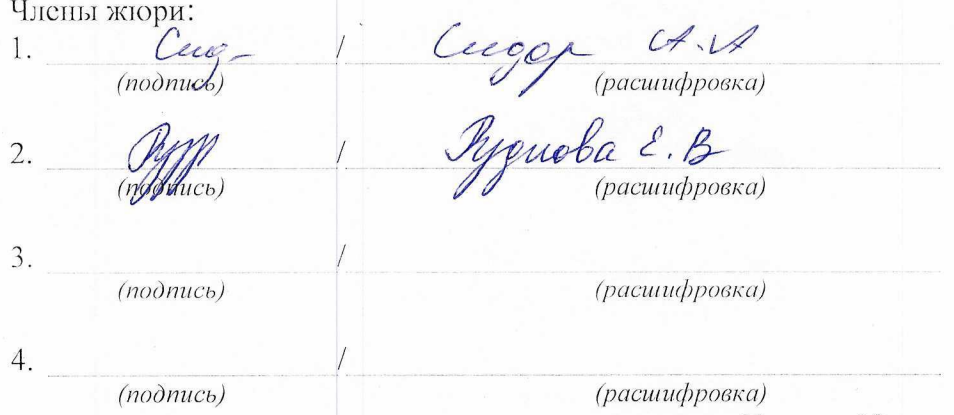 Члены жюри:
1. Сид- / Сидор А.А
(подпись) (расшифровка)
2. / Руднова Е.В
(подпись) (расшифровка)
3. /
(подпись) (расшифровка)
4. /
(подпись) (расшифровка)